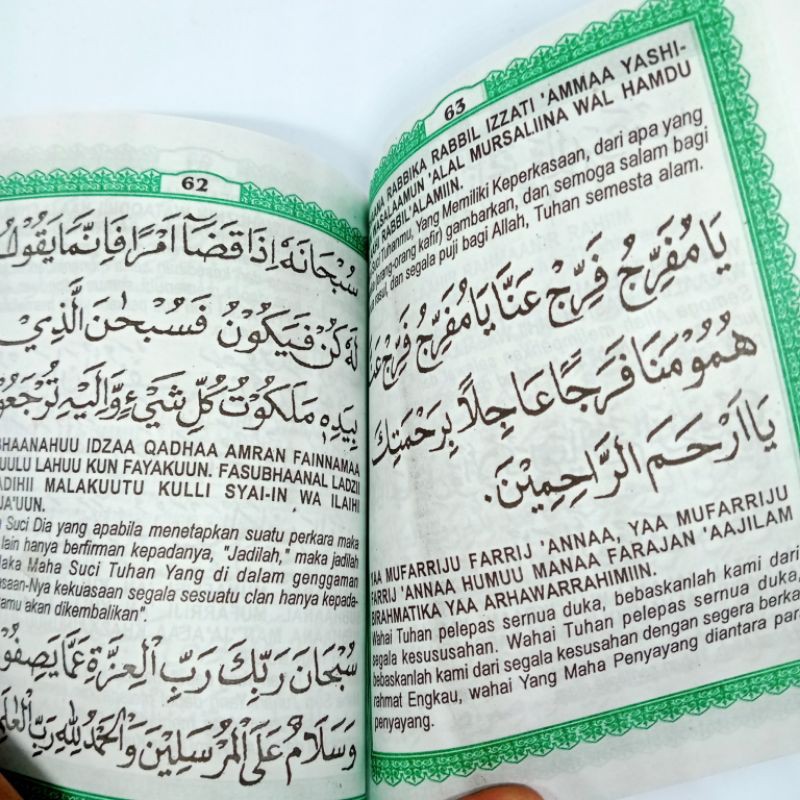 62
سُبْحَانَهٗ اِذَا قَضَآ اَمْرًا فَاِنَّمَا يَقُوْلُ
لَهٗ كُنْ فَيَكُوْنُ فَسُبْحٰنَ الَّذِيْ
بِيَدِهٖ مَلَكُوْتُ كُلِّ شَيْءٍ وَّاِلَيْهِ تُرْجَعُوْ
HAANAHUU IDZAA QADHAA AMRAN FAINNAMAA
UULU LAHUU KUN FAYAKUUN. FASUBHAANAL LADZII
ADIHII MALAKUUTU KULLI SYAI-IN WA ILAIHI
JA'UUN.
Suci Dia yang apabila menetapkan suatu perkara maka
lain hanya berfirman kepadanya, "Jadilah," maka jadilah
aka Maha Suci Tuhan Yang di dalam genggaman
asaan-Nya kekuasaan segala sesuatu clan hanya kepada-
amu akan dikembalikan".
سُبْحَانَ رَبِّكَ رَبِّ الْعِزَّةِ عَمَّا يَصِفُوْ
وَسَلَامٌ عَلَى الْمُرْسَلِيْنَ وَالْحَمْدُ لِلّٰهِ رَبِّ الْعٰلَمِ
63
ANA RABBIKA RABBIL IZZATI 'AMMAA YASHI-
ASALAAMUN 'ALAL MURSALIINA WAL HAMDU
AHI RABBIL'ALAMIIN.
Suci Tuhanmu, Yang Memiliki Keperkasaan, dari apa yang
(orang-orang kafir) gambarkan, dan semoga salam bagi
rasul, dan segala puji bagi Allah, Tuhan semesta alam.
يَا مُفَرِّجُ فَرِّجْ عَنَّا يَا مُفَرِّجُ فَرِّجْ عَنَّا
هُمُوْمَنَا فَرَجًا عَاجِلًا بِرَحْمَتِكَ
يَا اَرْحَمَ الرَّاحِمِيْنَ.
YAA MUFARRIJU FARRIJ 'ANNAA, YAA MUFARRIJU
FARRIJ 'ANNAA HUMUU MANAA FARAJAN 'AAJILAM
BIRAHMATIKA YAA ARHAWARRAHIMIIN.
Wahai Tuhan pelepas sernua duka, bebaskanlah kami dari
segala kesususahan. Wahai Tuhan pelepas sernua duka,
bebaskanlah kami dari segala kesusahan dengan segera berkat
rahmat Engkau, wahai Yang Maha Penyayang diantara para
penyayang.